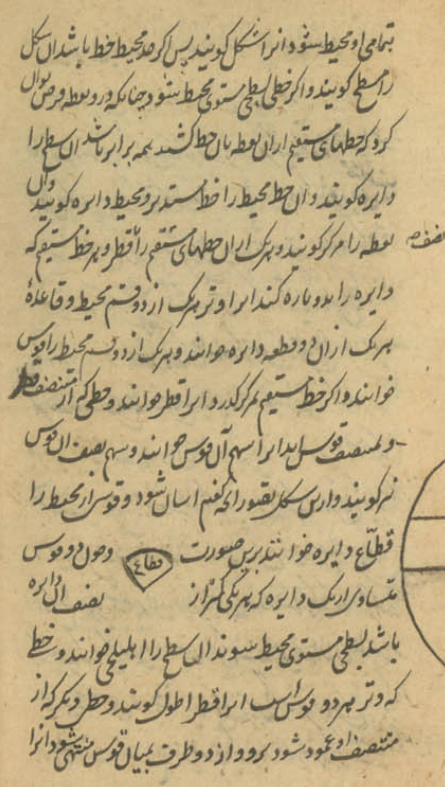 بتمامی او محیط شود آنرا شکل کویند پس اکر حد محیط خط باشد ان شکل
را مسطح کویند و اکر خطی بسطحی مستوی محیط شود چنانکه درو نقطه فرض توان
کرد که خطهای مستقیم از ان نقطه بان خط کشند همه برابر باشد ان سطح را
دایره کویند و ان خط محیط را خط مستدیر و محیط دایره کویند و ان
نقطه را مرکز کویند و هریک از ان خطهای مستقیم را قطر و هر خط مستقیم که
نصف
دایره را بدو پاره کند انرا وتر هریک از دو قسم محیط و قاعدهٔ
هریک از ان دو قطعه دایره خوانند و هریک از دو قسم محیط را قوس
خوانند و اکر خط مستقیم بمرکز کذرد انرا قطر خوانند و خطی که از منتصف
و بمنتصف قوس اید انرا سهم آن قوس خوانند و سهم نصف ان قوس
نیز کویند و ازین شکل تصور آنچه کفتیم اسان شود و قوسی از محیط را
قطاع دایره خوانند برین صورت
قطاع
و چون دو قوس
متساوی از یک دایره که هریکی کمتر از
نصف ان دایره
باشد بسطحی مستوی محیط شوند ان سطح را اهلیلجی خوانند و خطی
که وتر هر دو قوس است انرا قطر اطول کویند و خطی دیکر که از
منتصف او عمود شود برو و از دو طرف بمیان قوس منتهی شود انرا